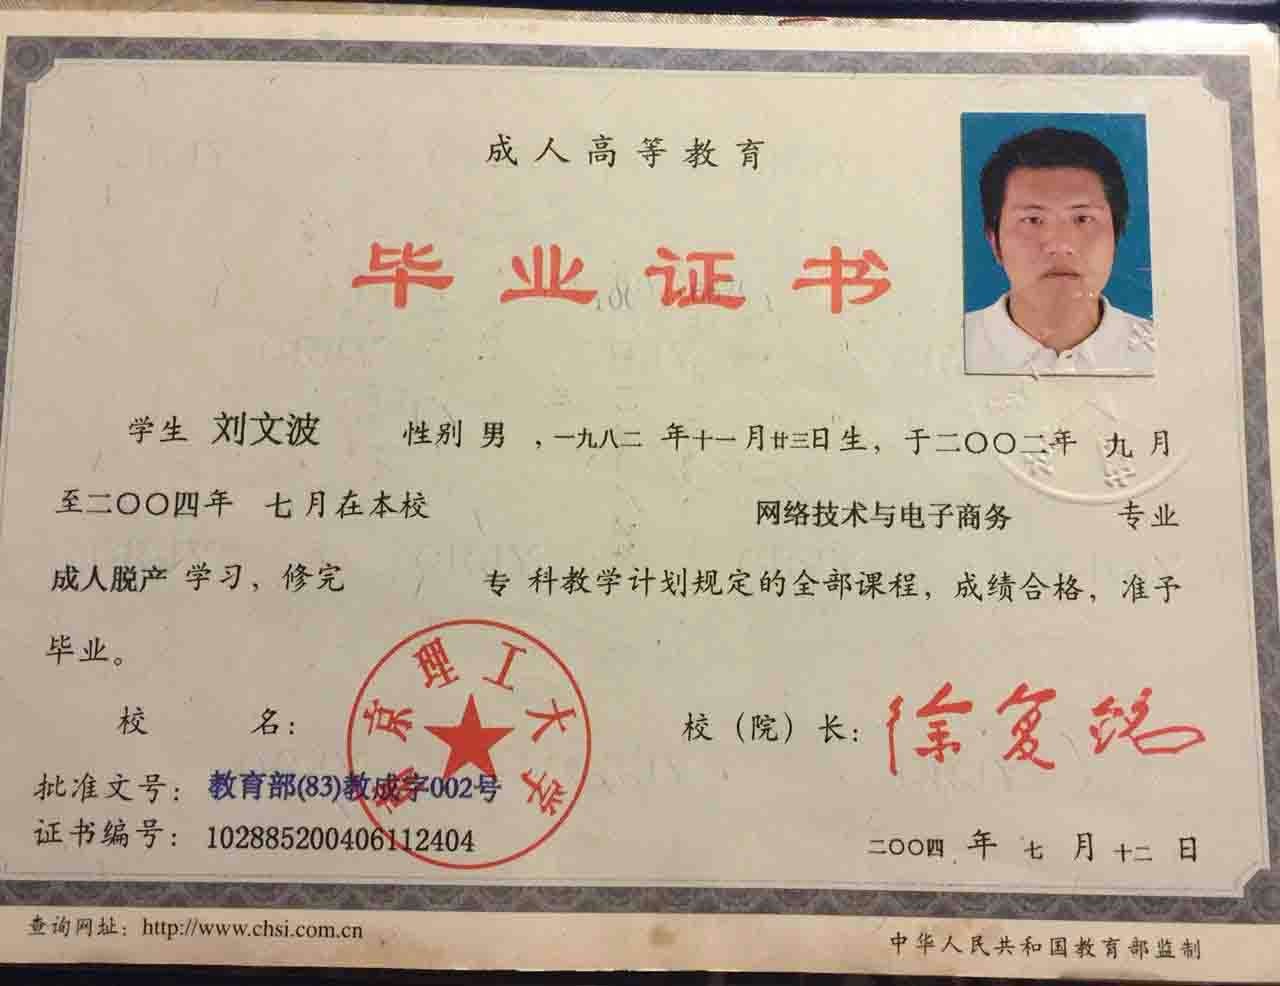 成人高等教育
毕业证书
学生 刘文波 性别 男 ,一九八二 年十一月廿三日生，于二〇〇二年 九 月
至二〇〇四年 七月在本校 网络技术与电子商务 专业
成人脱产 学习，修完 专 科教学计划规定的全部课程，成绩合格，准予
毕业。
校 名： 校（院）长：徐复铭
南京理工大学
批准文号：教育部(83)教成字002号
证书编号：102885200406112404
二〇〇四 年 七 月 十二 日
查询网址：http://www.chsi.com.cn
中华人民共和国教育部监制